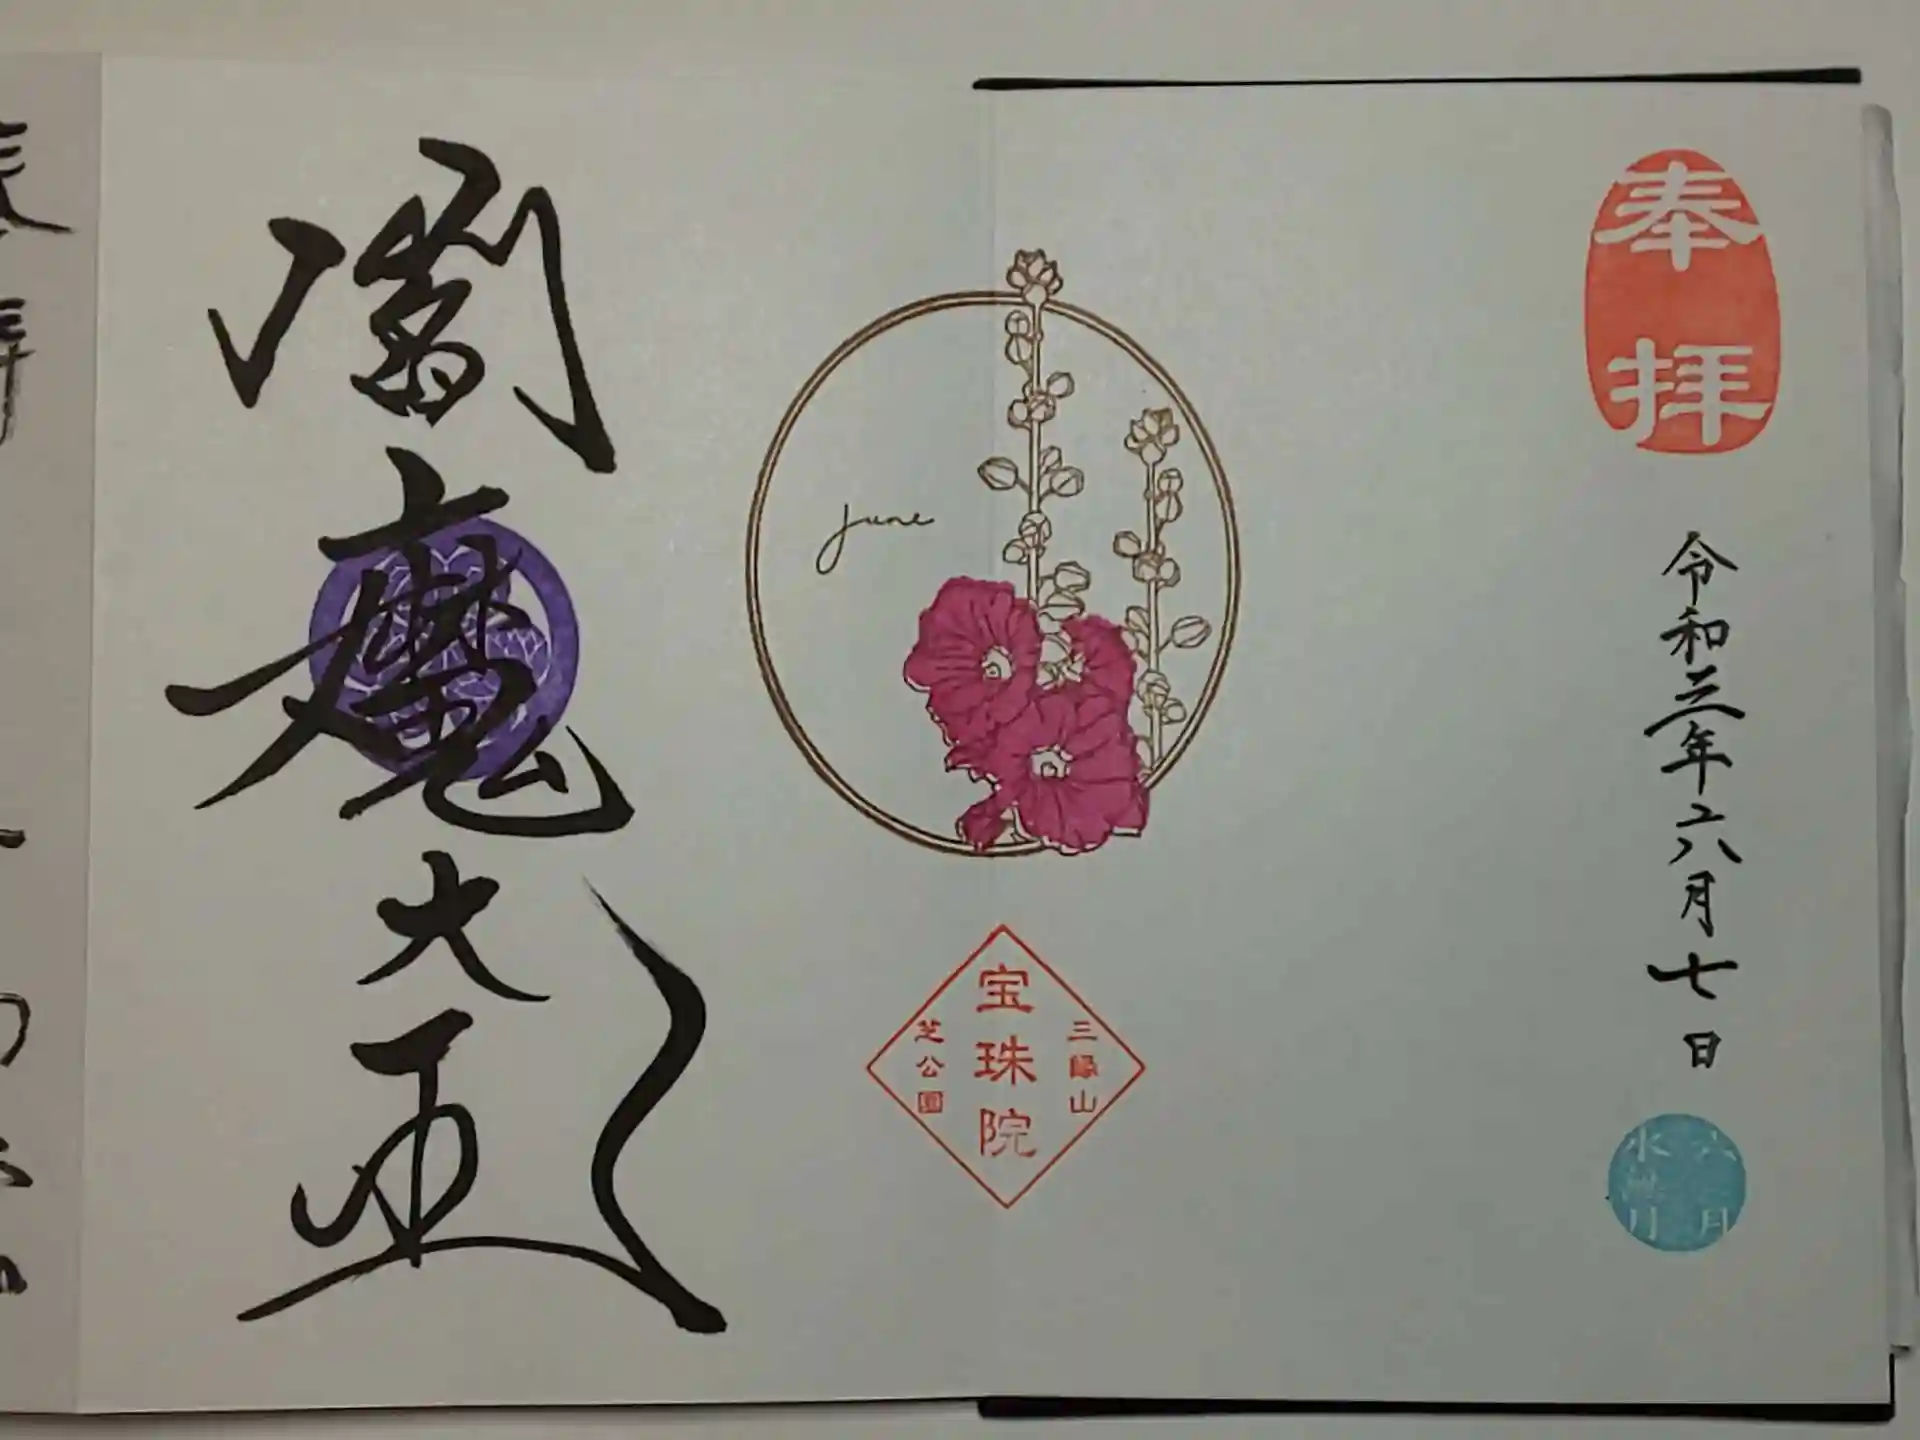 奉拝
令和三年六月七日
六月
水無月
june
三縁山
宝珠院
芝公園
閻魔大王